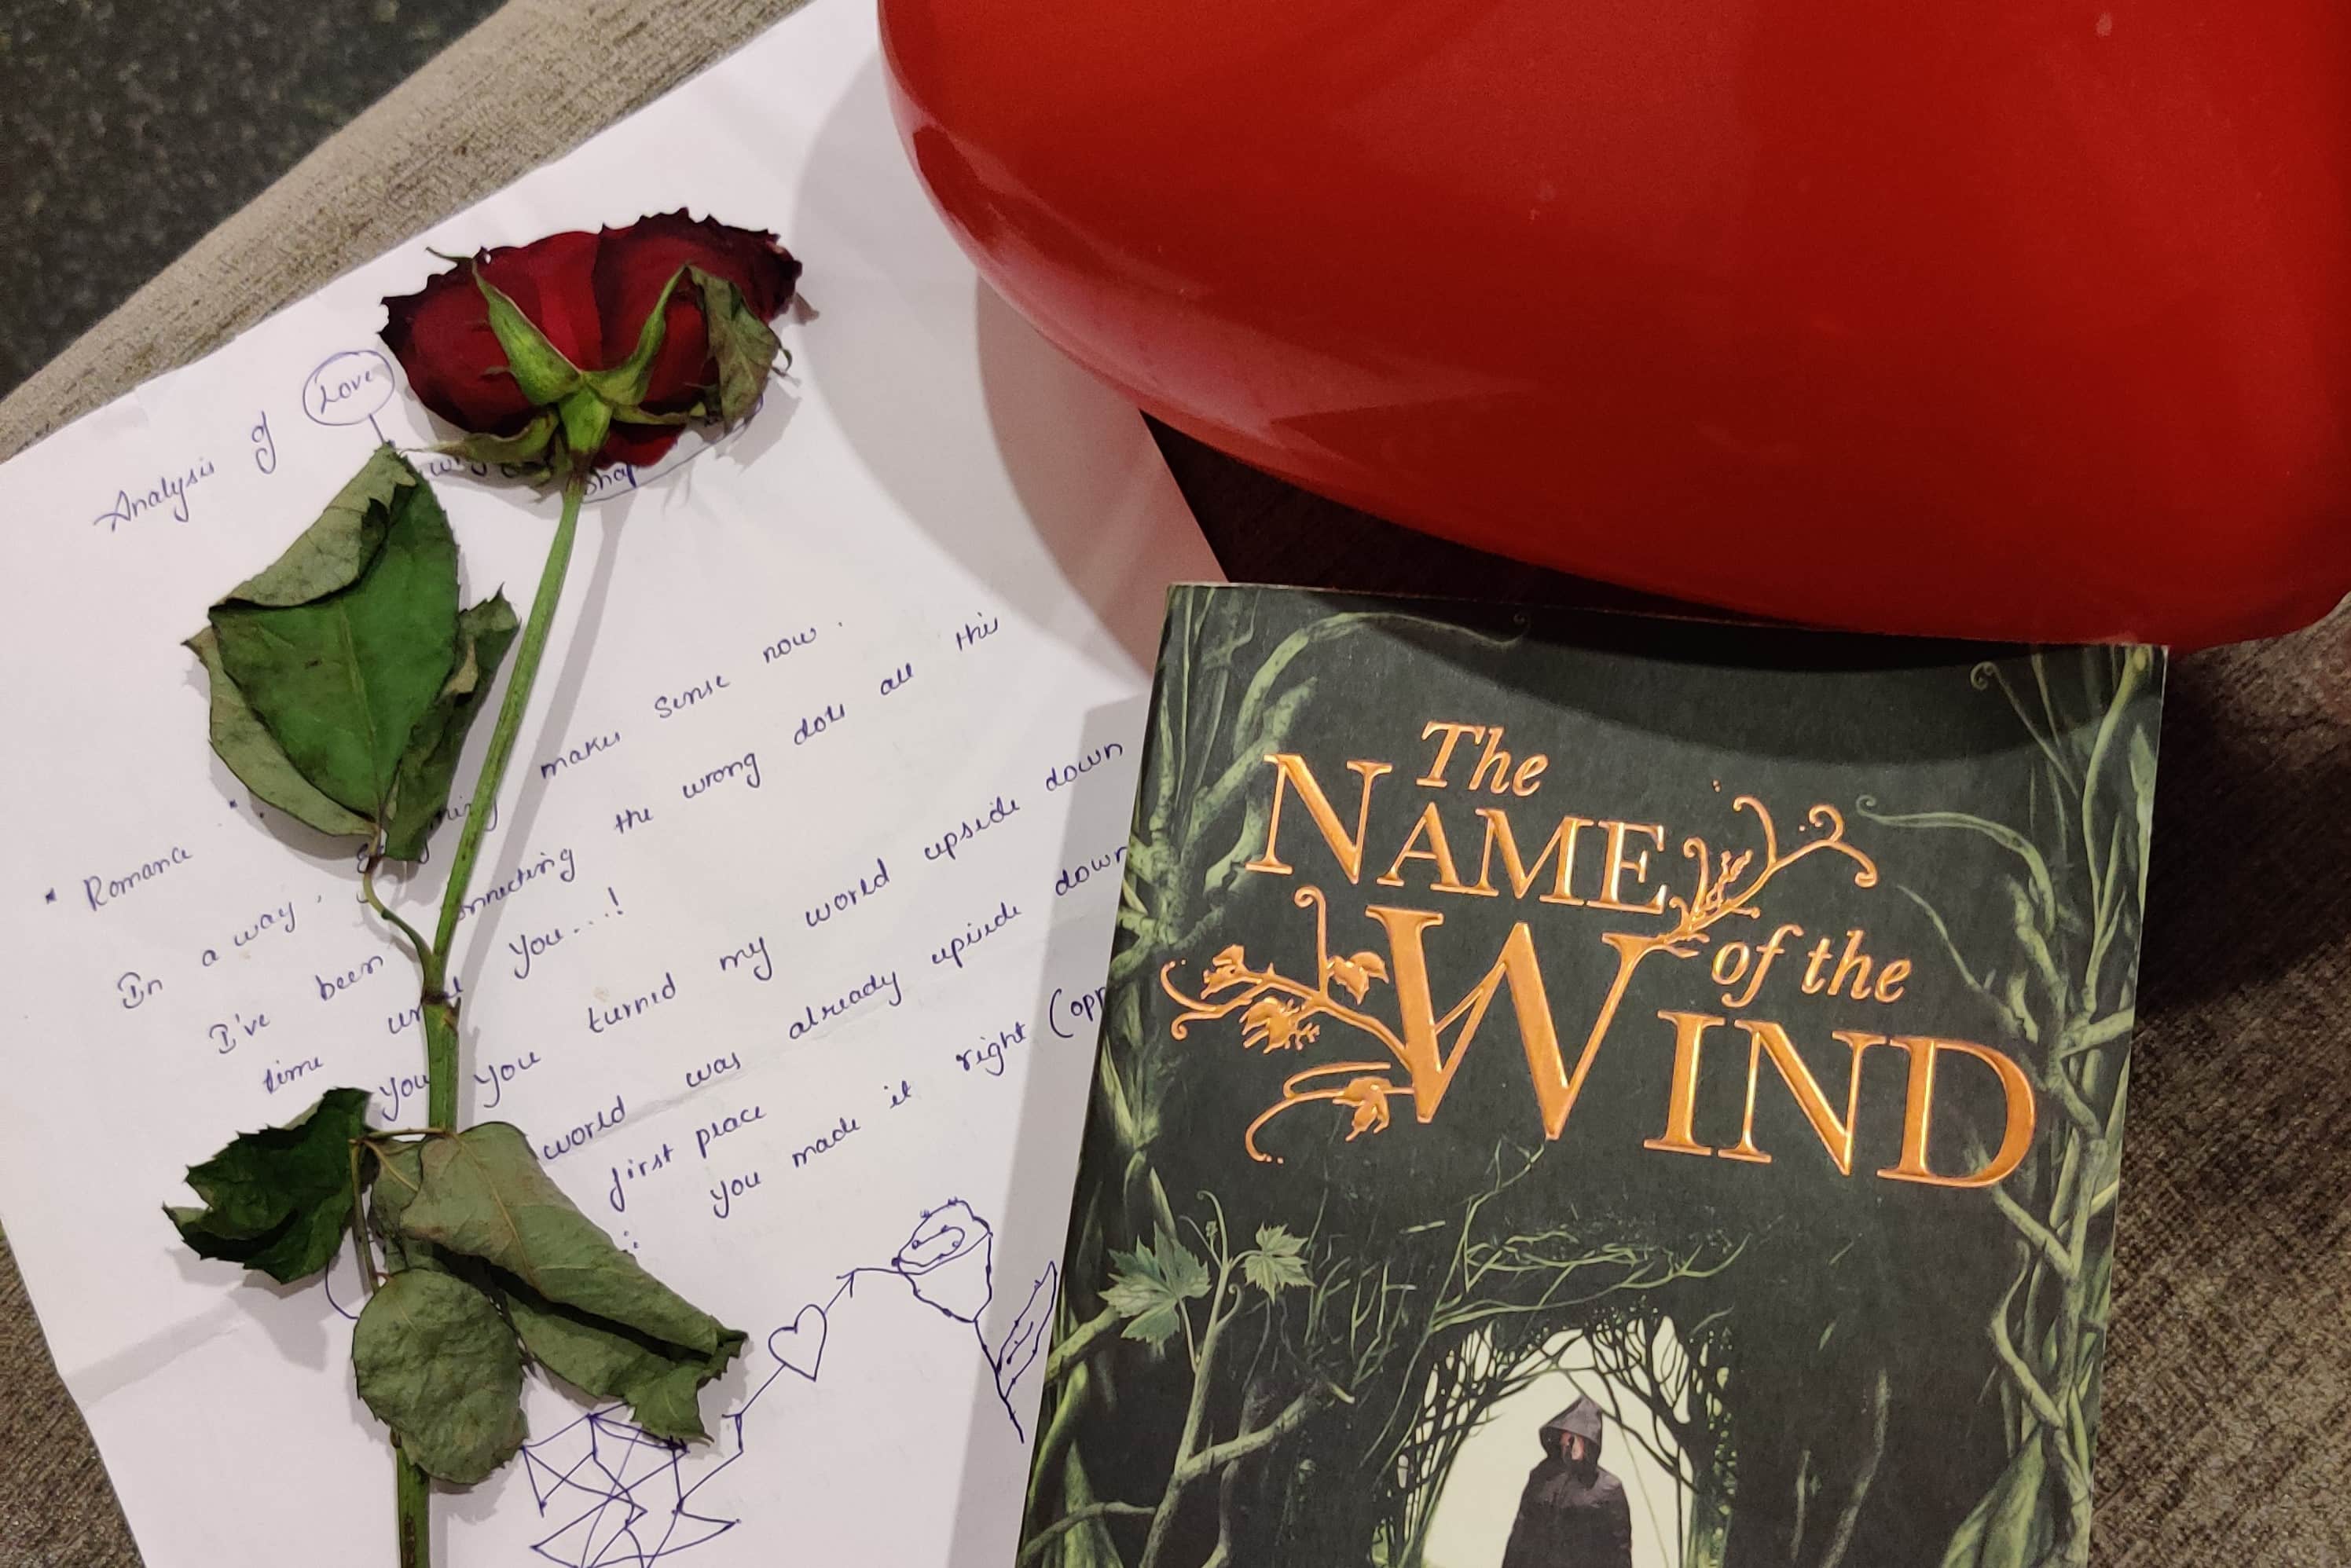 Analysis of Love
* Romance
In a way, makes sense now.
I've been connecting the wrong dots all this
time until you...!
you you turned my world upside down
world was already upside down
first place
you made it right (opp
The
NAME
of the
WIND